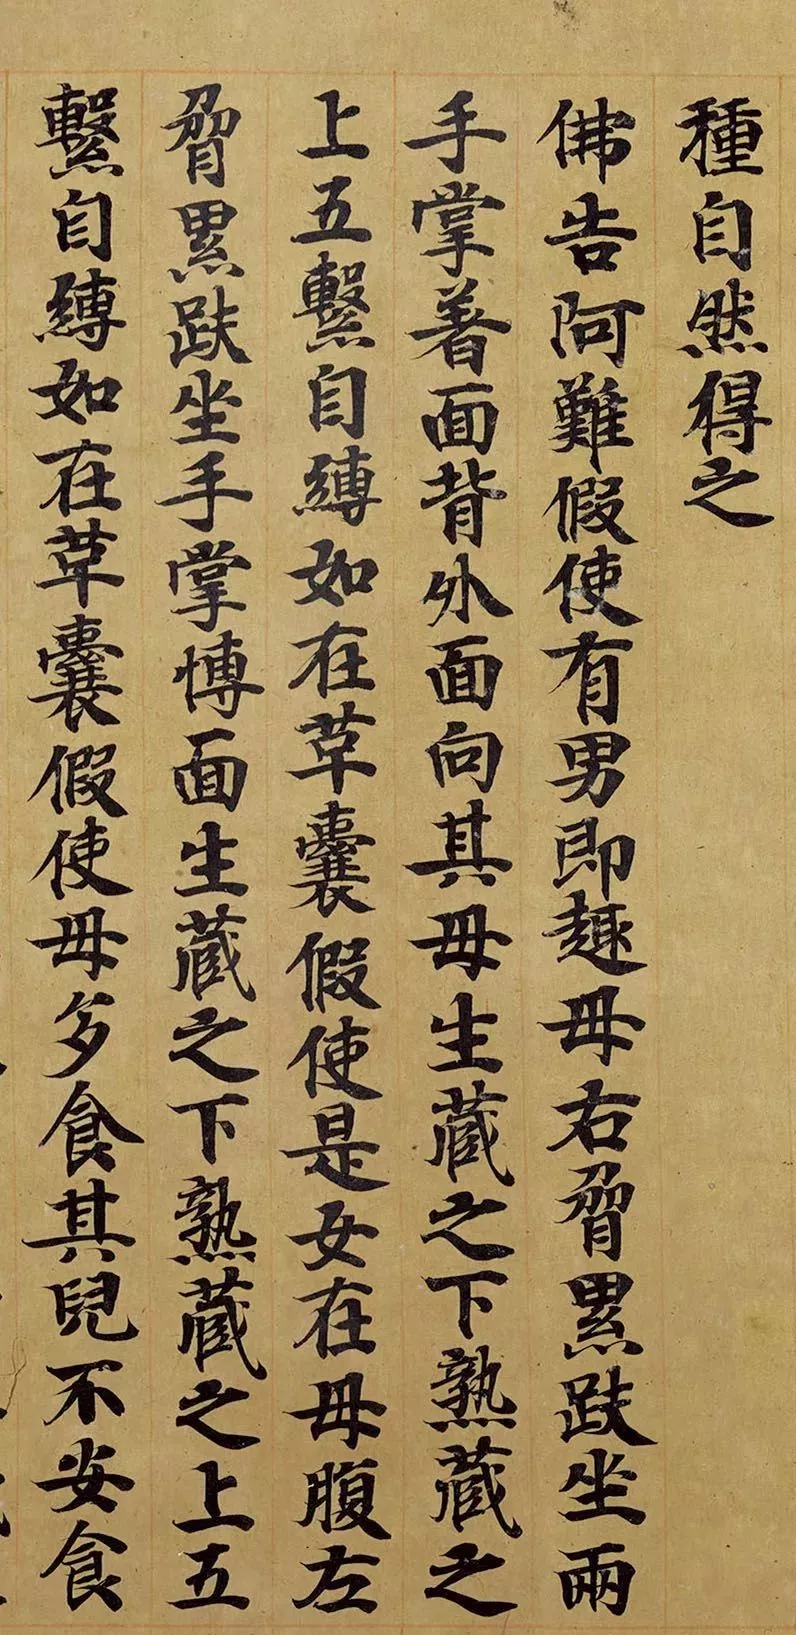 種自然得之
佛告阿難假使有男即趣母右脅累趺坐兩
手掌著面背外面向其母生蔵之下熟蔵之
上五繫自縛如在草囊假使是女在母腹左
脅累趺坐手掌博面生蔵之下熟蔵之上五
繫自縛如在草囊假使母多食其兒不安食